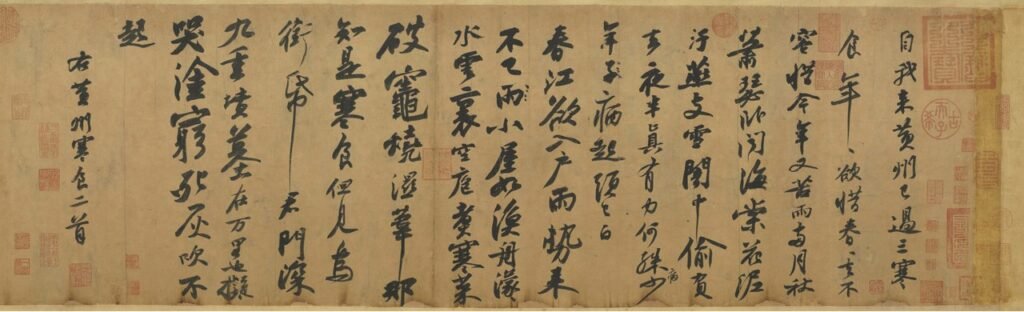 自我来黄州已過三寒
食年〻欲惜春〻去不
容惜今年又苦雨兩月秋
蕭瑟卧聞海棠花泥
汙燕支雪闇中偷負
去夜半真有力何殊病少
年子病起須已白
春江欲入戶雨勢来
不已雨小屋如漁舟濛〻
水雲裏空庖煮寒菜
破竈燒濕葦那
知是寒食但見烏
銜帋君門深
九重墳墓在万里也擬
哭塗窮死灰吹不
起
右黄州寒食二首
古希天子